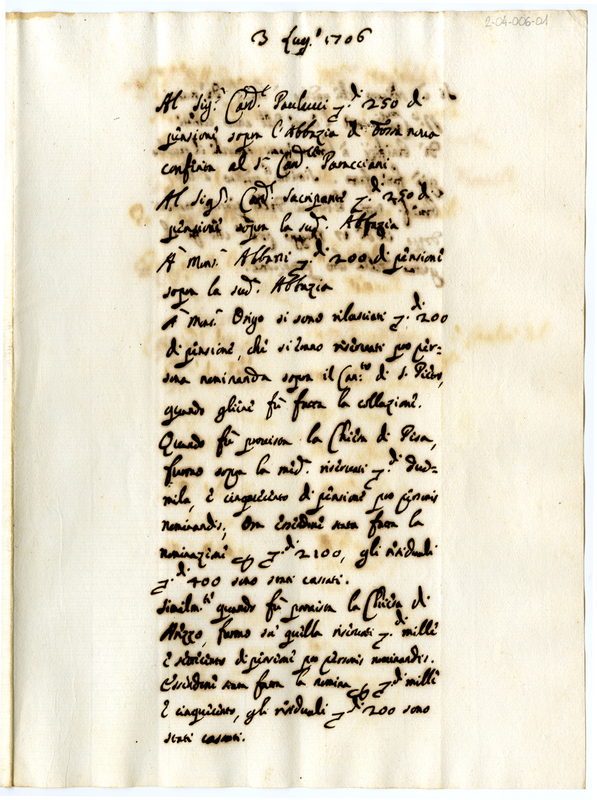 2-04-006-01
3 Lug.º 1706
Al Sig.r Card.l Paulucci ▽.di 250 di
pensione sopra l'Abbazia di
conferita al S.r Card.l Paracciani.
Al Sig.r Card.l Sacripante ▽.di 250 di
pensione sopra la sud.a Abbazia
A Mons.r ▽.di 200 di pensione
sopra la sud.a Abbazia
A Mons.r Origo si sono rilasciati ▽.di 200
di pensione, che si erano riservati pro per=
sona nominanda sopra il Can.to di S. Pietro,
quando gliene fù fatta la collazione.
Quando fù provista la Chiesa di Pisa,
furono sopra la med.a riservati ▽.di due=
mila, e cinquecento di pensione pro personis
nominandis, Ora essendone stata fatta la
nominazione ▽.di 2100, gli residuali
▽.di 400 sono stati cassati.
Similm.te quando fù provista la Chiesa di
Arezzo, furono sù quella riservati ▽.di mille
e settecento di pensione pro personis nominandis.
Essendone stata fatta la nomina ▽.di mille
e cinquecento, gli residuali ▽.di 200 sono
stati cassati.